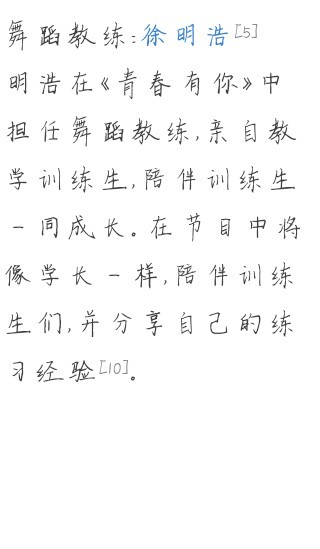 舞蹈教练:徐明浩[5]
明浩在《青春有你》中
担任舞蹈教练,亲自教
学训练生,陪伴训练生
一同成长。在节目中将
像学长一样,陪伴训练
生们,并分享自己的练
习经验[10]。